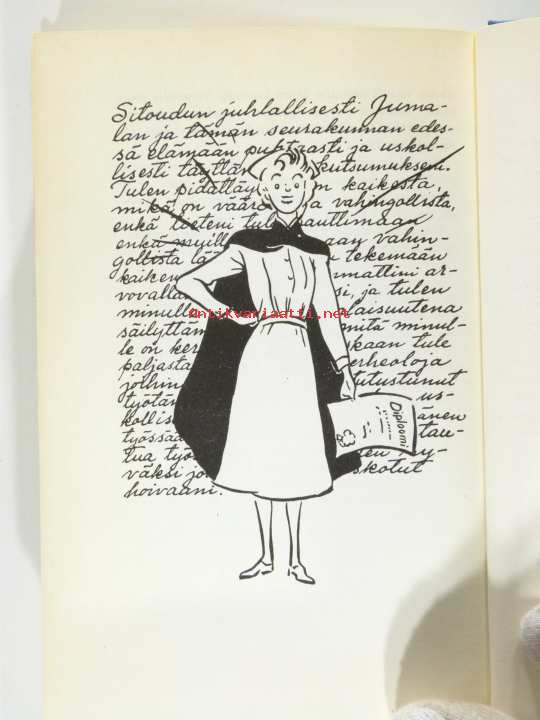 Sitoudun juhlallisesti Juma-
lan ja tämän seurakunnan edes-
sä elämään puhtaasti ja uskol-
lisesti täyttä kutsumukseni.
Tulen pidättäy n kaikesta,
mikä on väärä ja vahingollista,
enkä tieteni tule nauttimaan
enkä muill aan vahin-
gollista lä tekemään
kaiken mmattini ar-
vovallan si, ja tulen
minull laisuutena
säilyttäm mitä minul-
le on ker kaan tule
paljasta erheoloja
joihin tutustunut
työtän us-
kollis änen
työssää tau-
tua työ ten hy-
väksi jo skotut
hoivaani.
Diploomi
Antikvariaatti.net